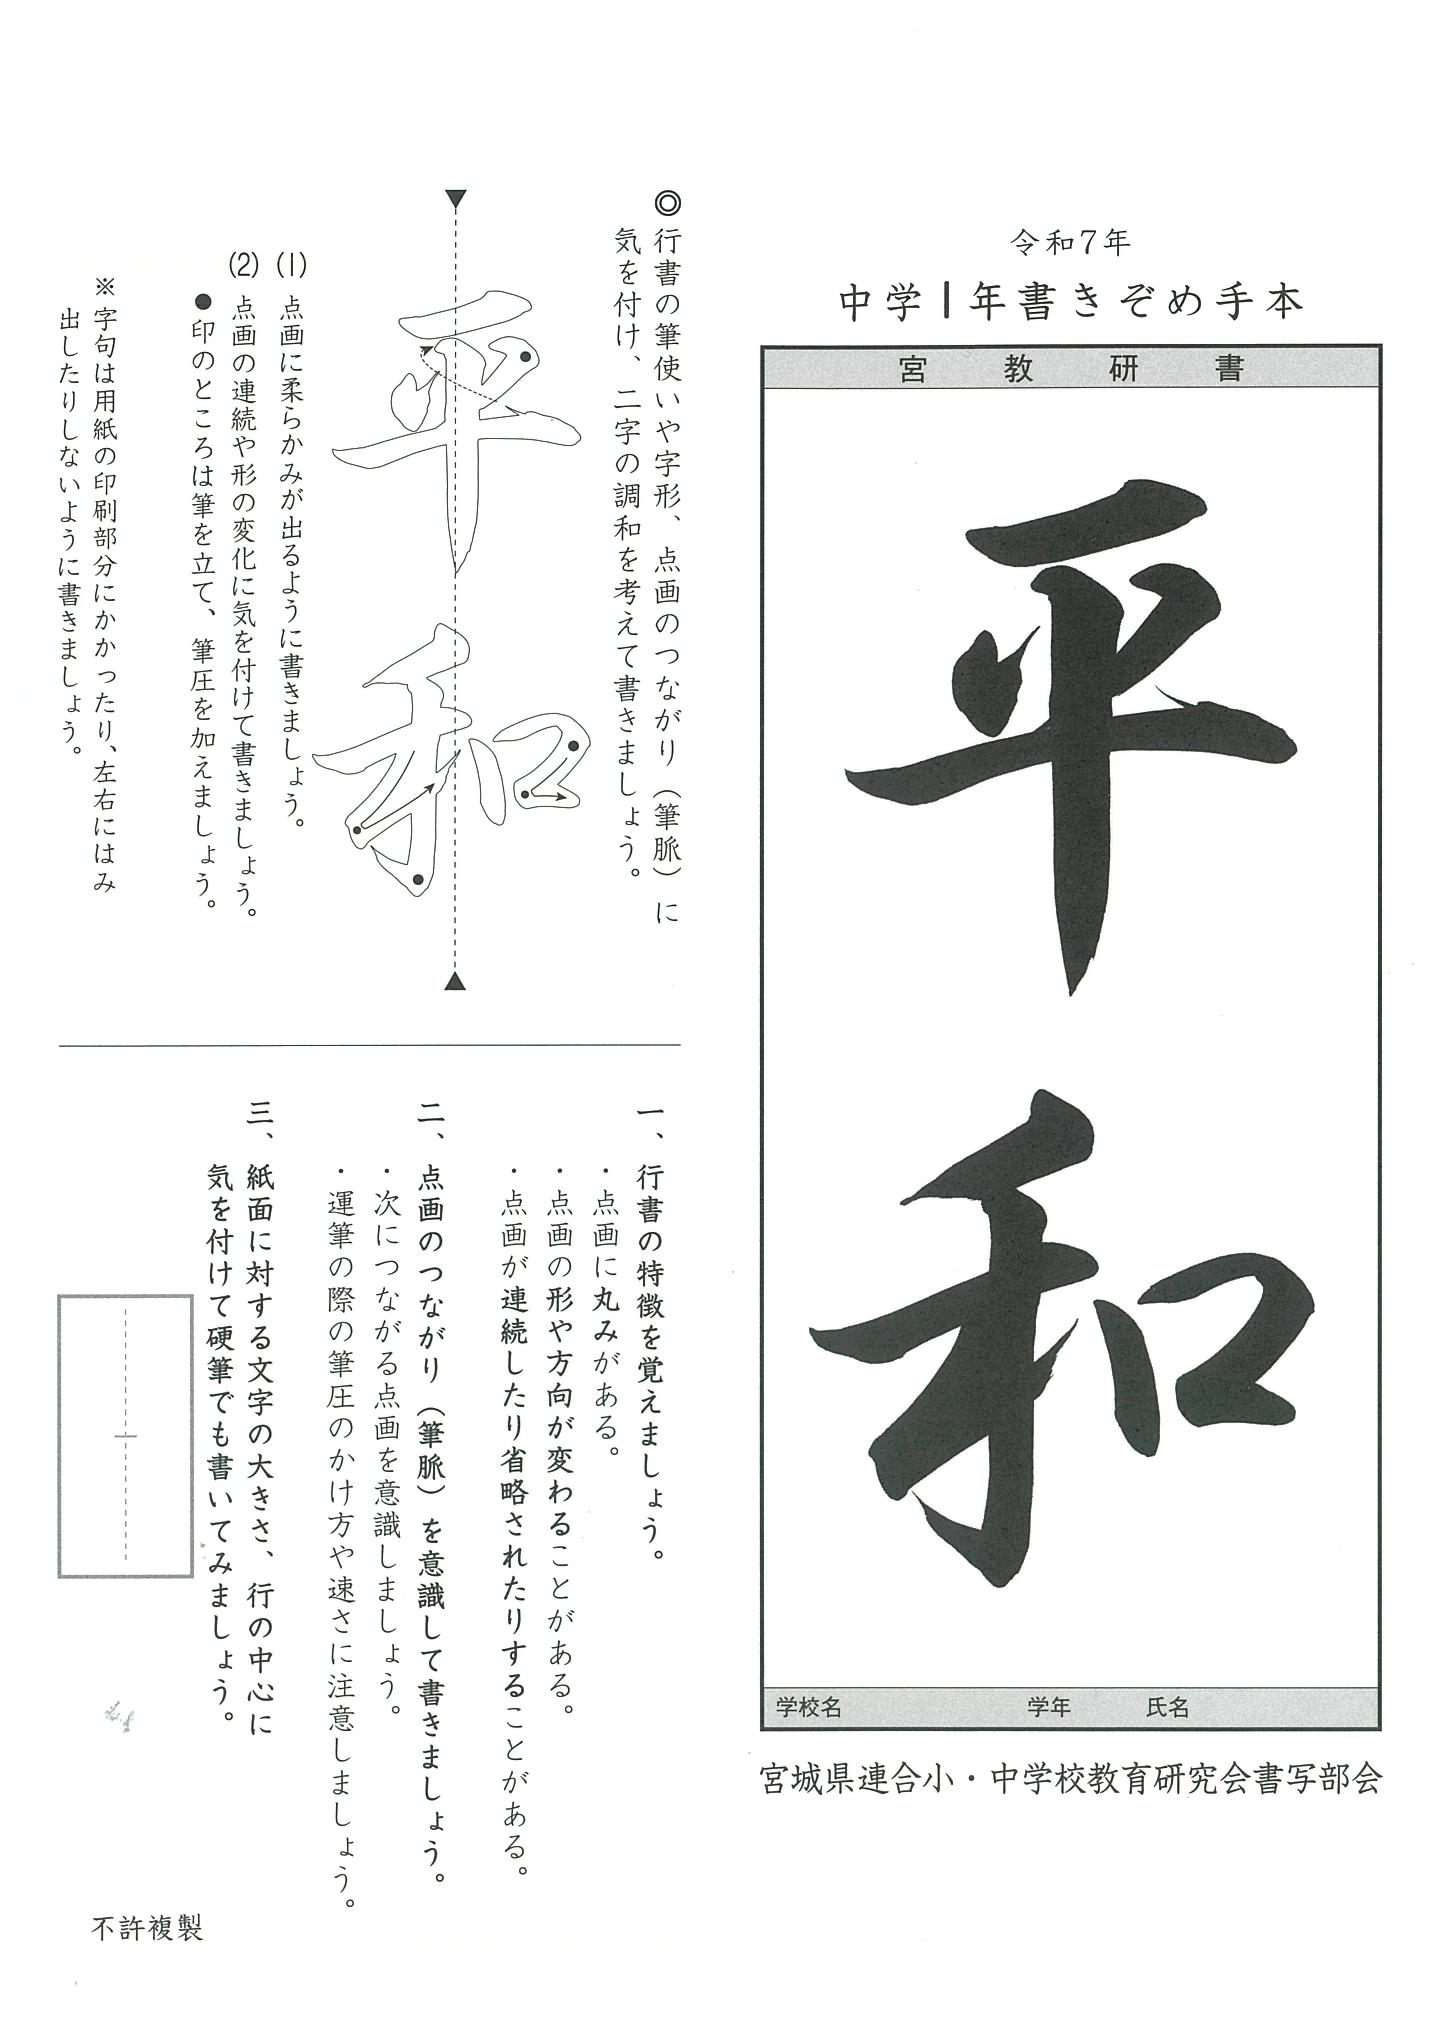 令和7年
中学1年書きぞめ手本
宮教研書
平和
学校名 学年 氏名
宮城県連合小・中学校教育研究会書写部会
◎行書の筆使いや字形、点画のつながり（筆脈）に
気を付け、二字の調和を考えて書きましょう。
平和
(1) 点画に柔らかみが出るように書きましょう。
(2) 点画の連続や形の変化に気を付けて書きましょう。
●印のところは筆を立て、筆圧を加えましょう。
※字句は用紙の印刷部分にかかったり、左右にはみ
出したりしないように書きましょう。
一、行書の特徴を覚えましょう。
・点画に丸みがある。
・点画の形や方向が変わることがある。
・点画が連続したり省略されたりすることがある。
二、点画のつながり（筆脈）を意識して書きましょう。
・次につながる点画を意識しましょう。
・運筆の際の筆圧のかけ方や速さに注意しましょう。
三、紙面に対する文字の大きさ、行の中心に
気を付けて硬筆でも書いてみましょう。
不許複製